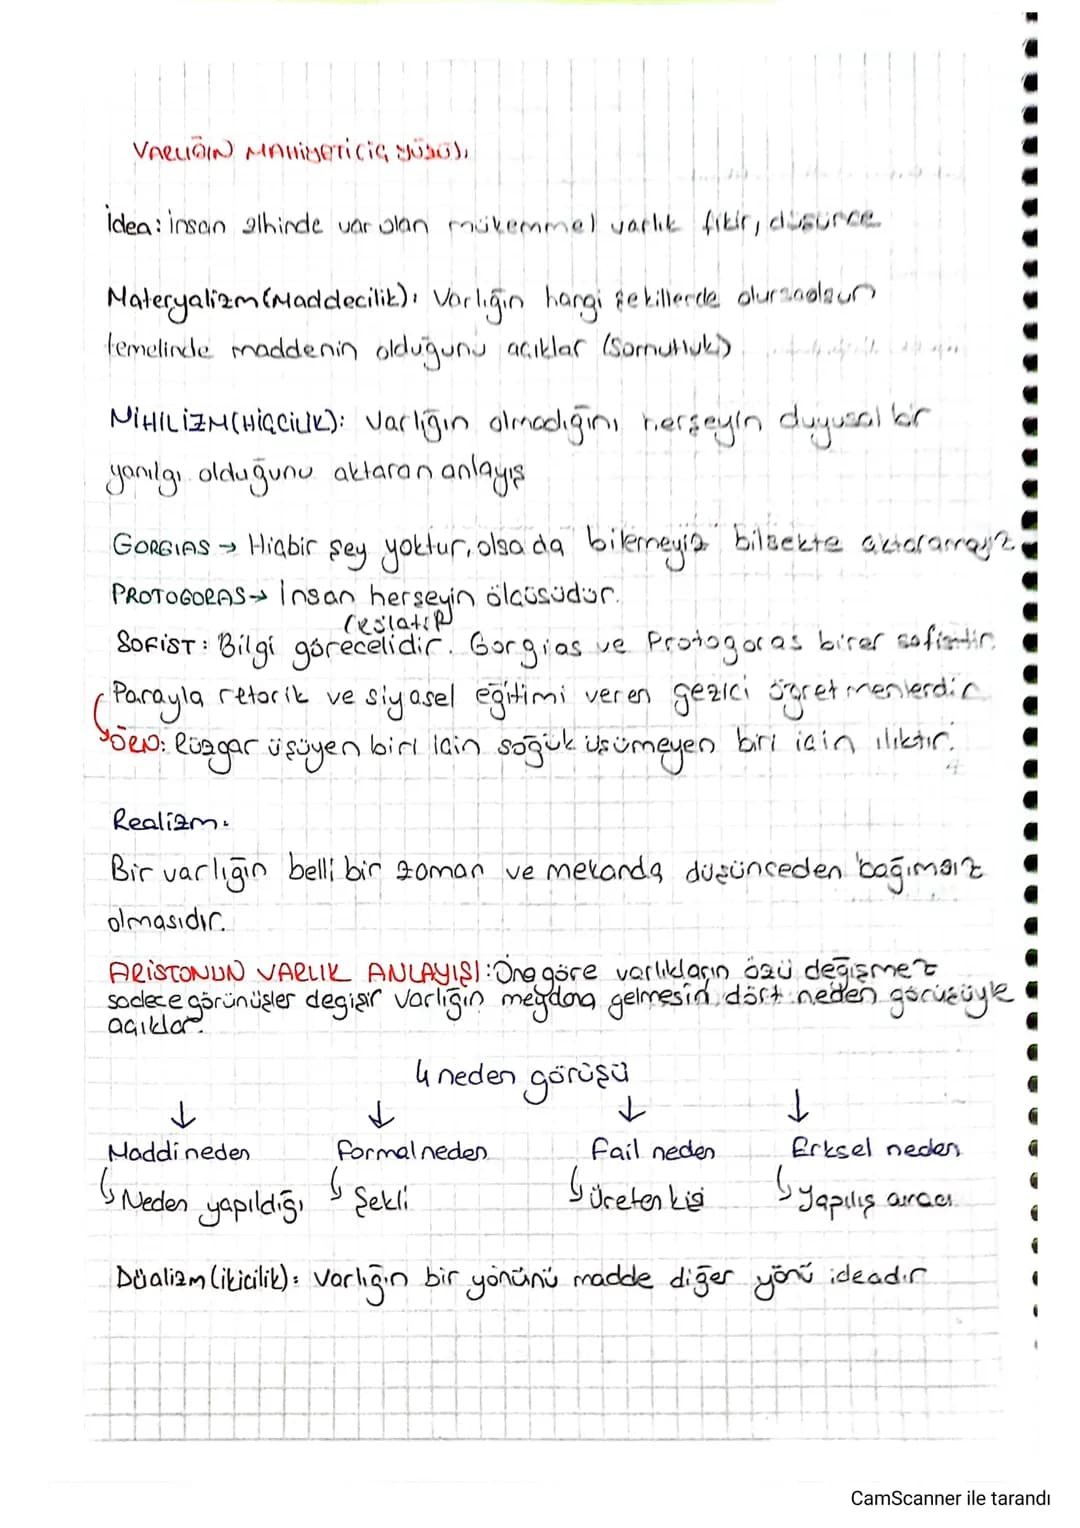 VARLIĞIN MAHİYETİ(İÇ YÜZÜ),
İdea: insan zihinde var olan mükemmel varlık fikir, düşünce
Materyalizm(Maddecilik): Varlığın hangi şekillerde olursaolsun
temelinde maddenin olduğunu açıklar (Somutluk)
NİHİLİZM(HİÇCİLİK): Varlığın olmadığını herşeyin duyusal bir
yanılgı olduğunu aktaran anlayış
GORGIAS → Hiçbir şey yoktur, olsa da bilemeyiz bilsekte aktaramayız.
PROTOGORAS → İnsan herşeyin ölçüsüdür.
(reslatif)
SOFİST: Bilgi görecelidir. Gorgias ve Protogoras birer sofisttir.
Parayla retorik ve siyasel eğitimi veren gezici öğretmenlerdir
ÖRN: Rüzgar üşüyen biri için soğuk üşümeyen biri için ılıktır.
Realizm.
Bir varlığın belli bir zaman ve mekanda düşünceden bağımsız
olmasıdır.
ARİSTONUN VARLIK ANLAYIŞI: Ona göre varlıkların özü değişmez
sadece görünüşler değişir varlığın meydana gelmesini dört neden görüşüyle
açıklar.
4 neden görüşü
↓ ↓ ↓ ↓
Maddi neden Formal neden Fail neden Erksel neden
↳ Neden yapıldığı ↳ Şekli ↳ Üreten kişi ↳ Yapılış amacı
Düalizm (ikicilik): Varlığın bir yönünü madde diğer yönü ideadır
CamScanner ile tarandı